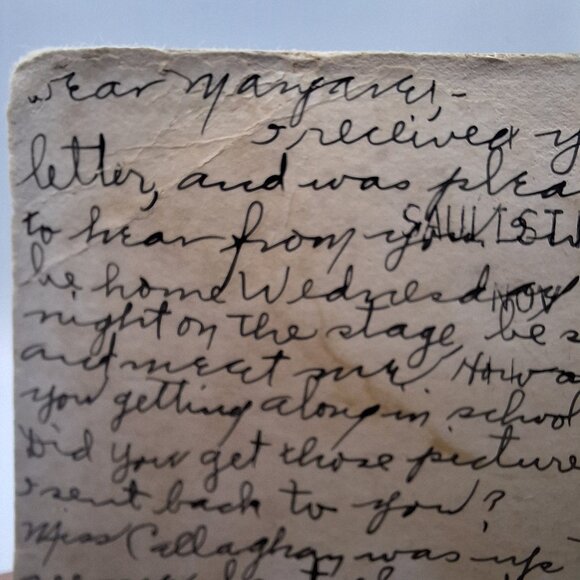 Dear Margaret,-
I received y
letter, and was plea
to hear from you
SAULT ST
be home Wednesday
NOV
night on the stage, be s
and meet me, How a
you getting along in school
Did you get those picture
I sent back to you?
Miss Callaghan was up